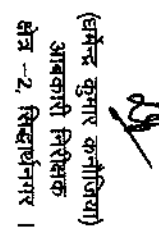 (धर्मेन्द्र कुमार कनौजिया)
आबकारी निरीक्षक
क्षेत्र -2, सिद्धार्थनगर ।